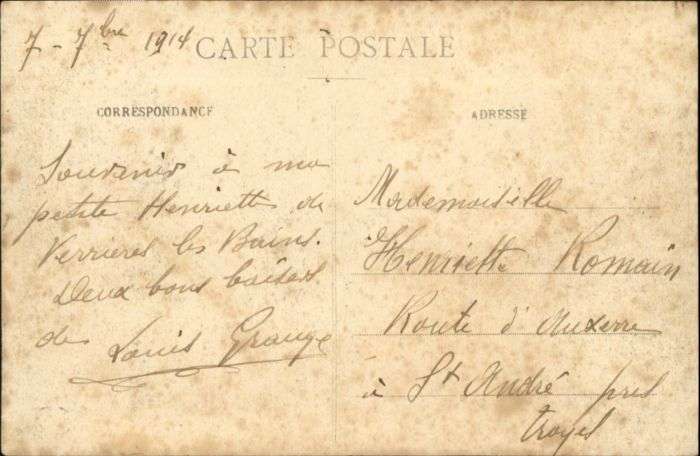 7 - 7bre 1914
CARTE POSTALE
CORRESPONDANCE
Souvenir à ma
petite Henriette de
Verrieres les Bains.
Deux bons baisers
de Louis Grange
ADRESSE
Mademoiselle
Henriette Romain
Route d'Auxerre
à St André pres
troyes